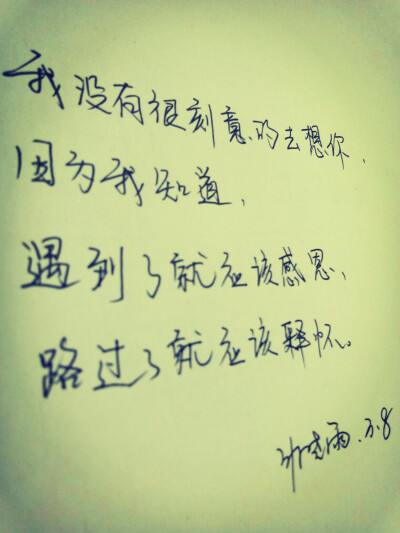 我没有很刻意的去想你,
因为我知道,
遇到了就应该感恩,
路过了就应该释怀。
3.8